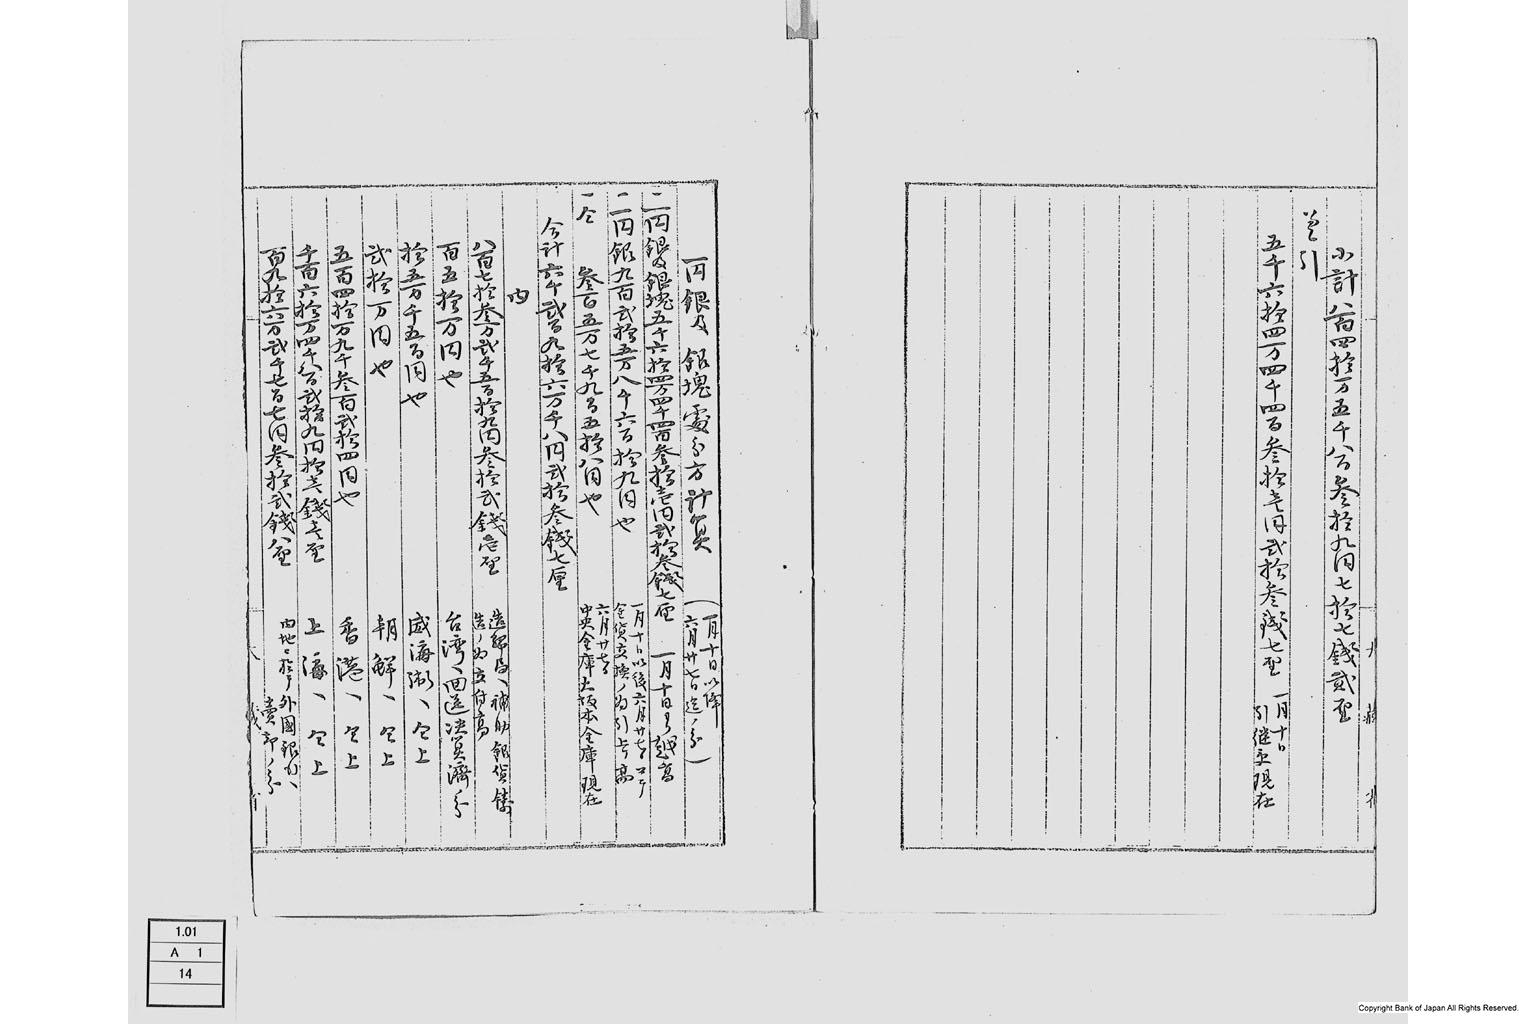 小計 八百四拾万五千八百参拾九円七拾七銭貳厘
差引
五千六拾四万四千四百参拾壱円弐拾参銭七厘 一月十日引継高現在
一円銀及銀塊處分方計算(一月十日以降六月廿七日迄ノ分)
一一円銀及銀塊五千六拾四万四千四百参拾壱円弐拾参銭七厘 一月十日ヨリ越高
一一円銀九百弐拾五万八千六百拾九円也 一月十日以後六月廿七日マテ金貨交換ノ為引上ケ高
一仝 参百五万七千九百五拾八円也 六月廿七日中央金庫大坂本金庫現在
合計六千弐百九拾六万千八円弐拾参銭七厘
内
八百七拾参万弐千五百拾九円参拾弐銭壱厘 造幣局ヘ補助銀貨鋳造ノ為交付高
百五拾万円也 台湾ヘ回送決算済分
拾五万千五百円也 威海衛ヘ仝上
弐拾一万円也 朝鮮ヘ仝上
五百四拾万九千参百弐拾四円也 香港ヘ仝上
千百六拾万四千八百弐拾九円拾壱銭壱厘 上海ヘ仝上
百九拾六万弐千七百七円参拾弐銭八厘 内地ニ於テ外國銀行ヘ賣却ノ分
大藏省
1.01
A 1
14
Copyright Bank of Japan All Rights Reserved.